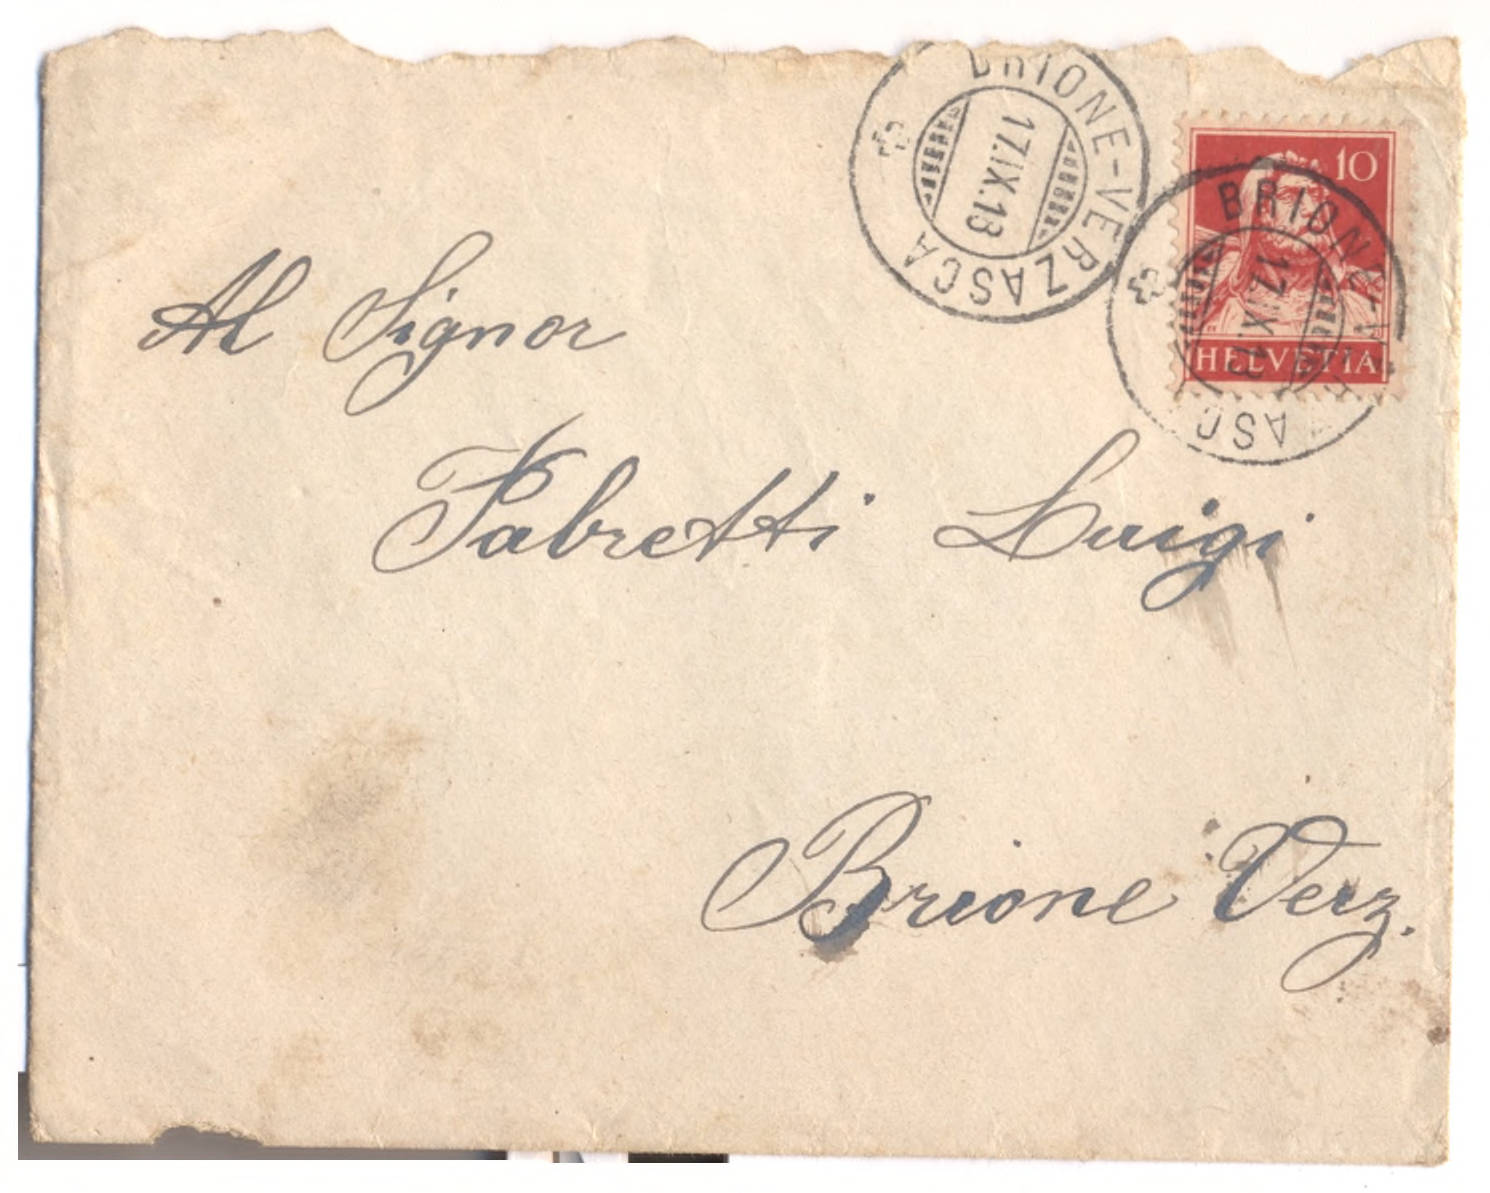 BRIONE-VERZASCA
17.IX.18
10
BRIONE-V
17.IX.18
HELVETIA
ASC
Al Signor
Fabretti Luigi
Brione Verz.